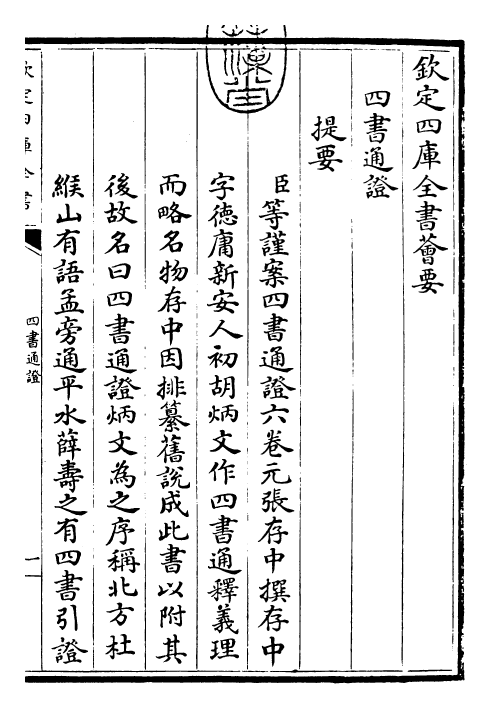 欽定四庫全書薈要
四書通證
提要
臣等謹案四書通證六卷元張存中撰存中
字德庸新安人初胡炳文作四書通釋義理
而略名物存中因排纂舊說成此書以附其
後故名曰四書通證炳文為之序稱北方杜
緱山有語孟旁通平水薛壽之有四書引證
欽定四庫全書
四書通證
一